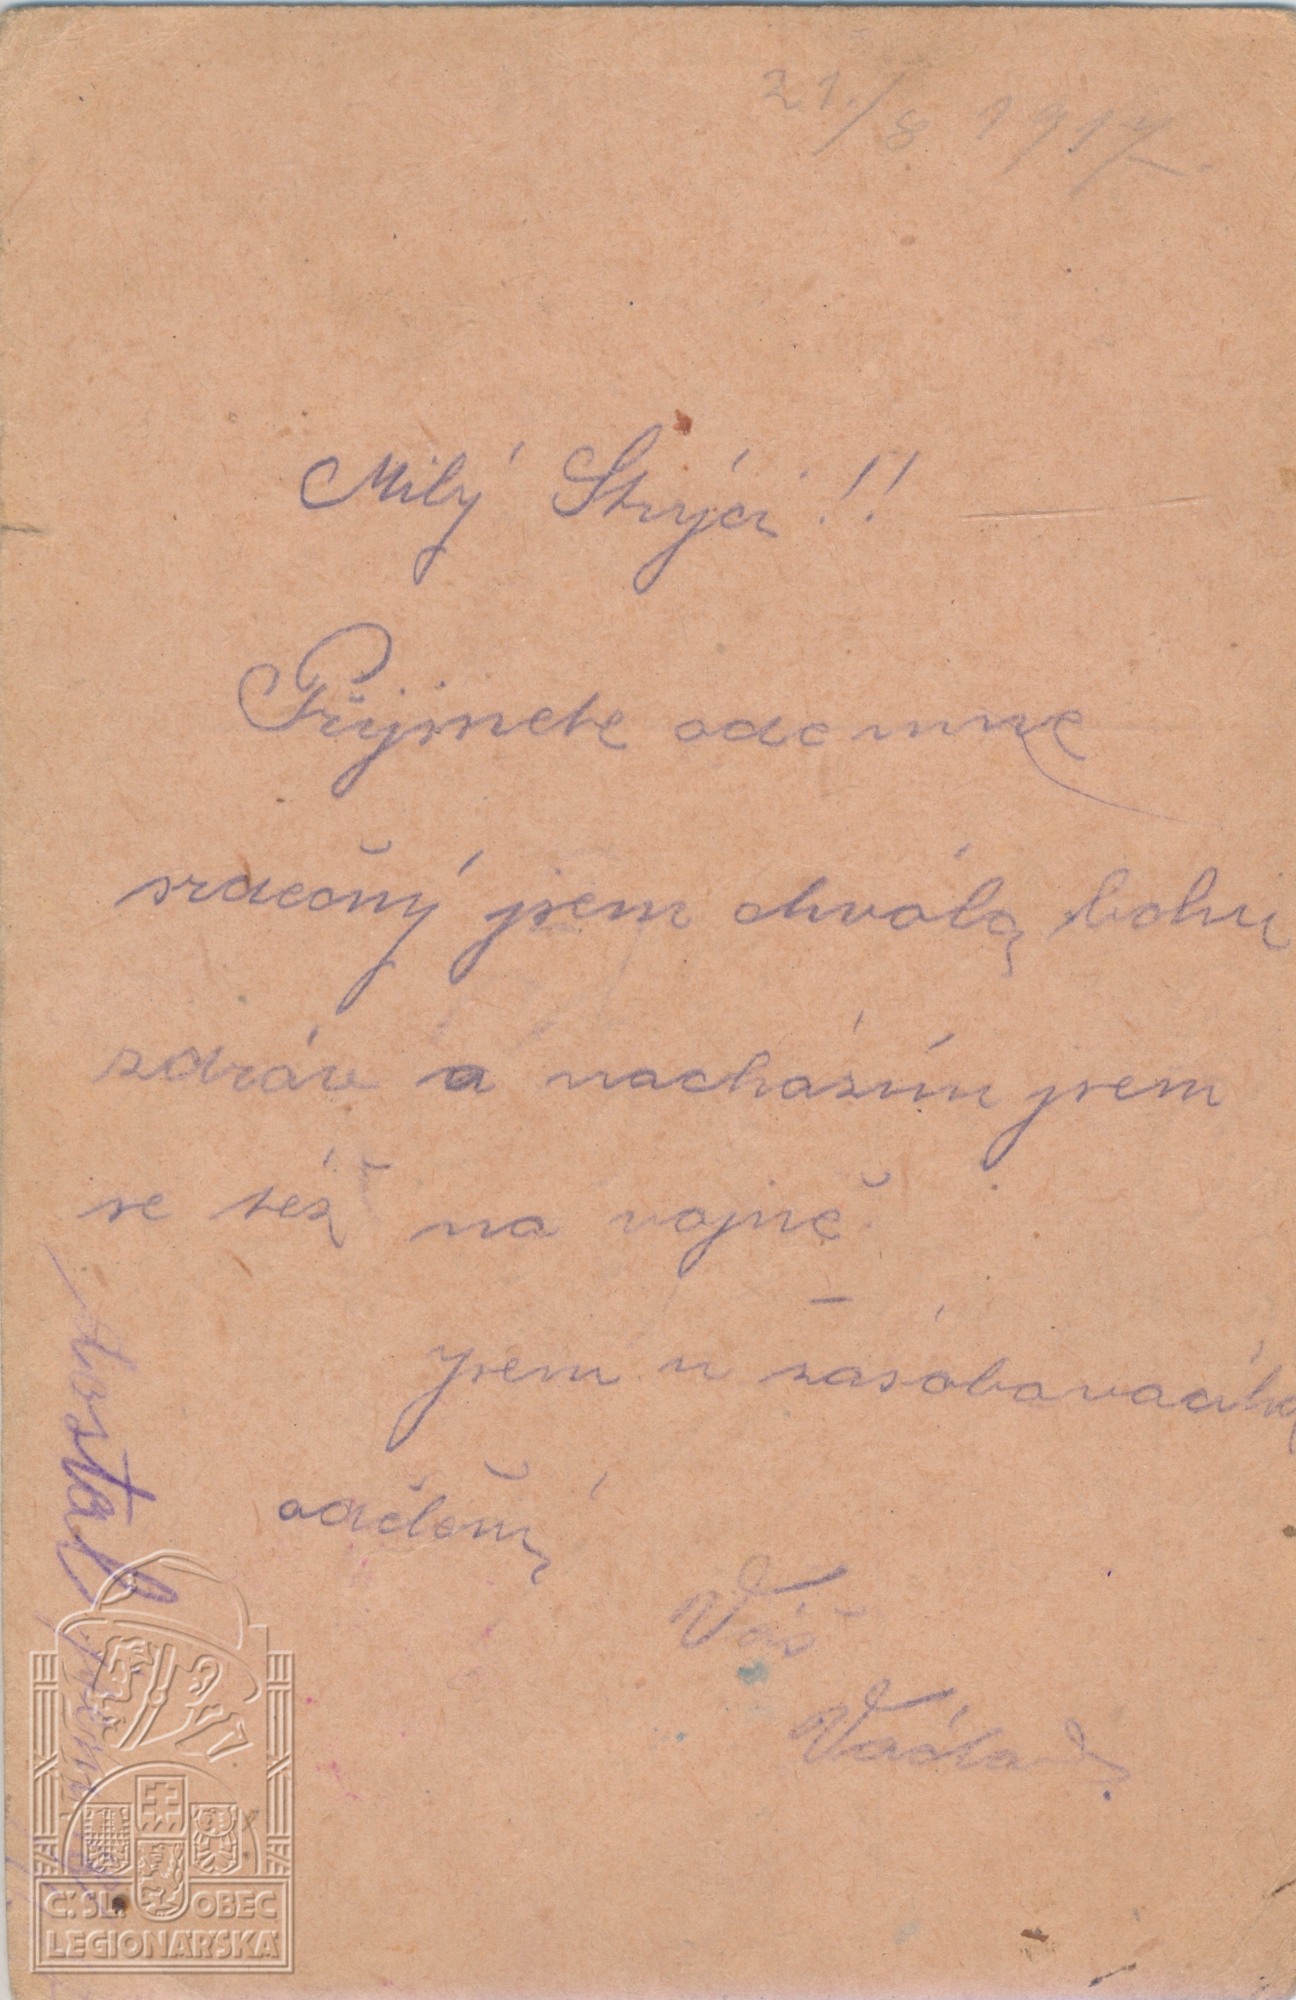 21./8 1917.
Milý Strýci!!
Přijmete odemne
srdečný jsem chvála bohu
zdráv a nacházím jsem
se též na vojně.
Jsem u zásobovacího
oddělení
Váš
Václav.
dostal
Č.SL. OBEC
LEGIONÁŘSKÁ